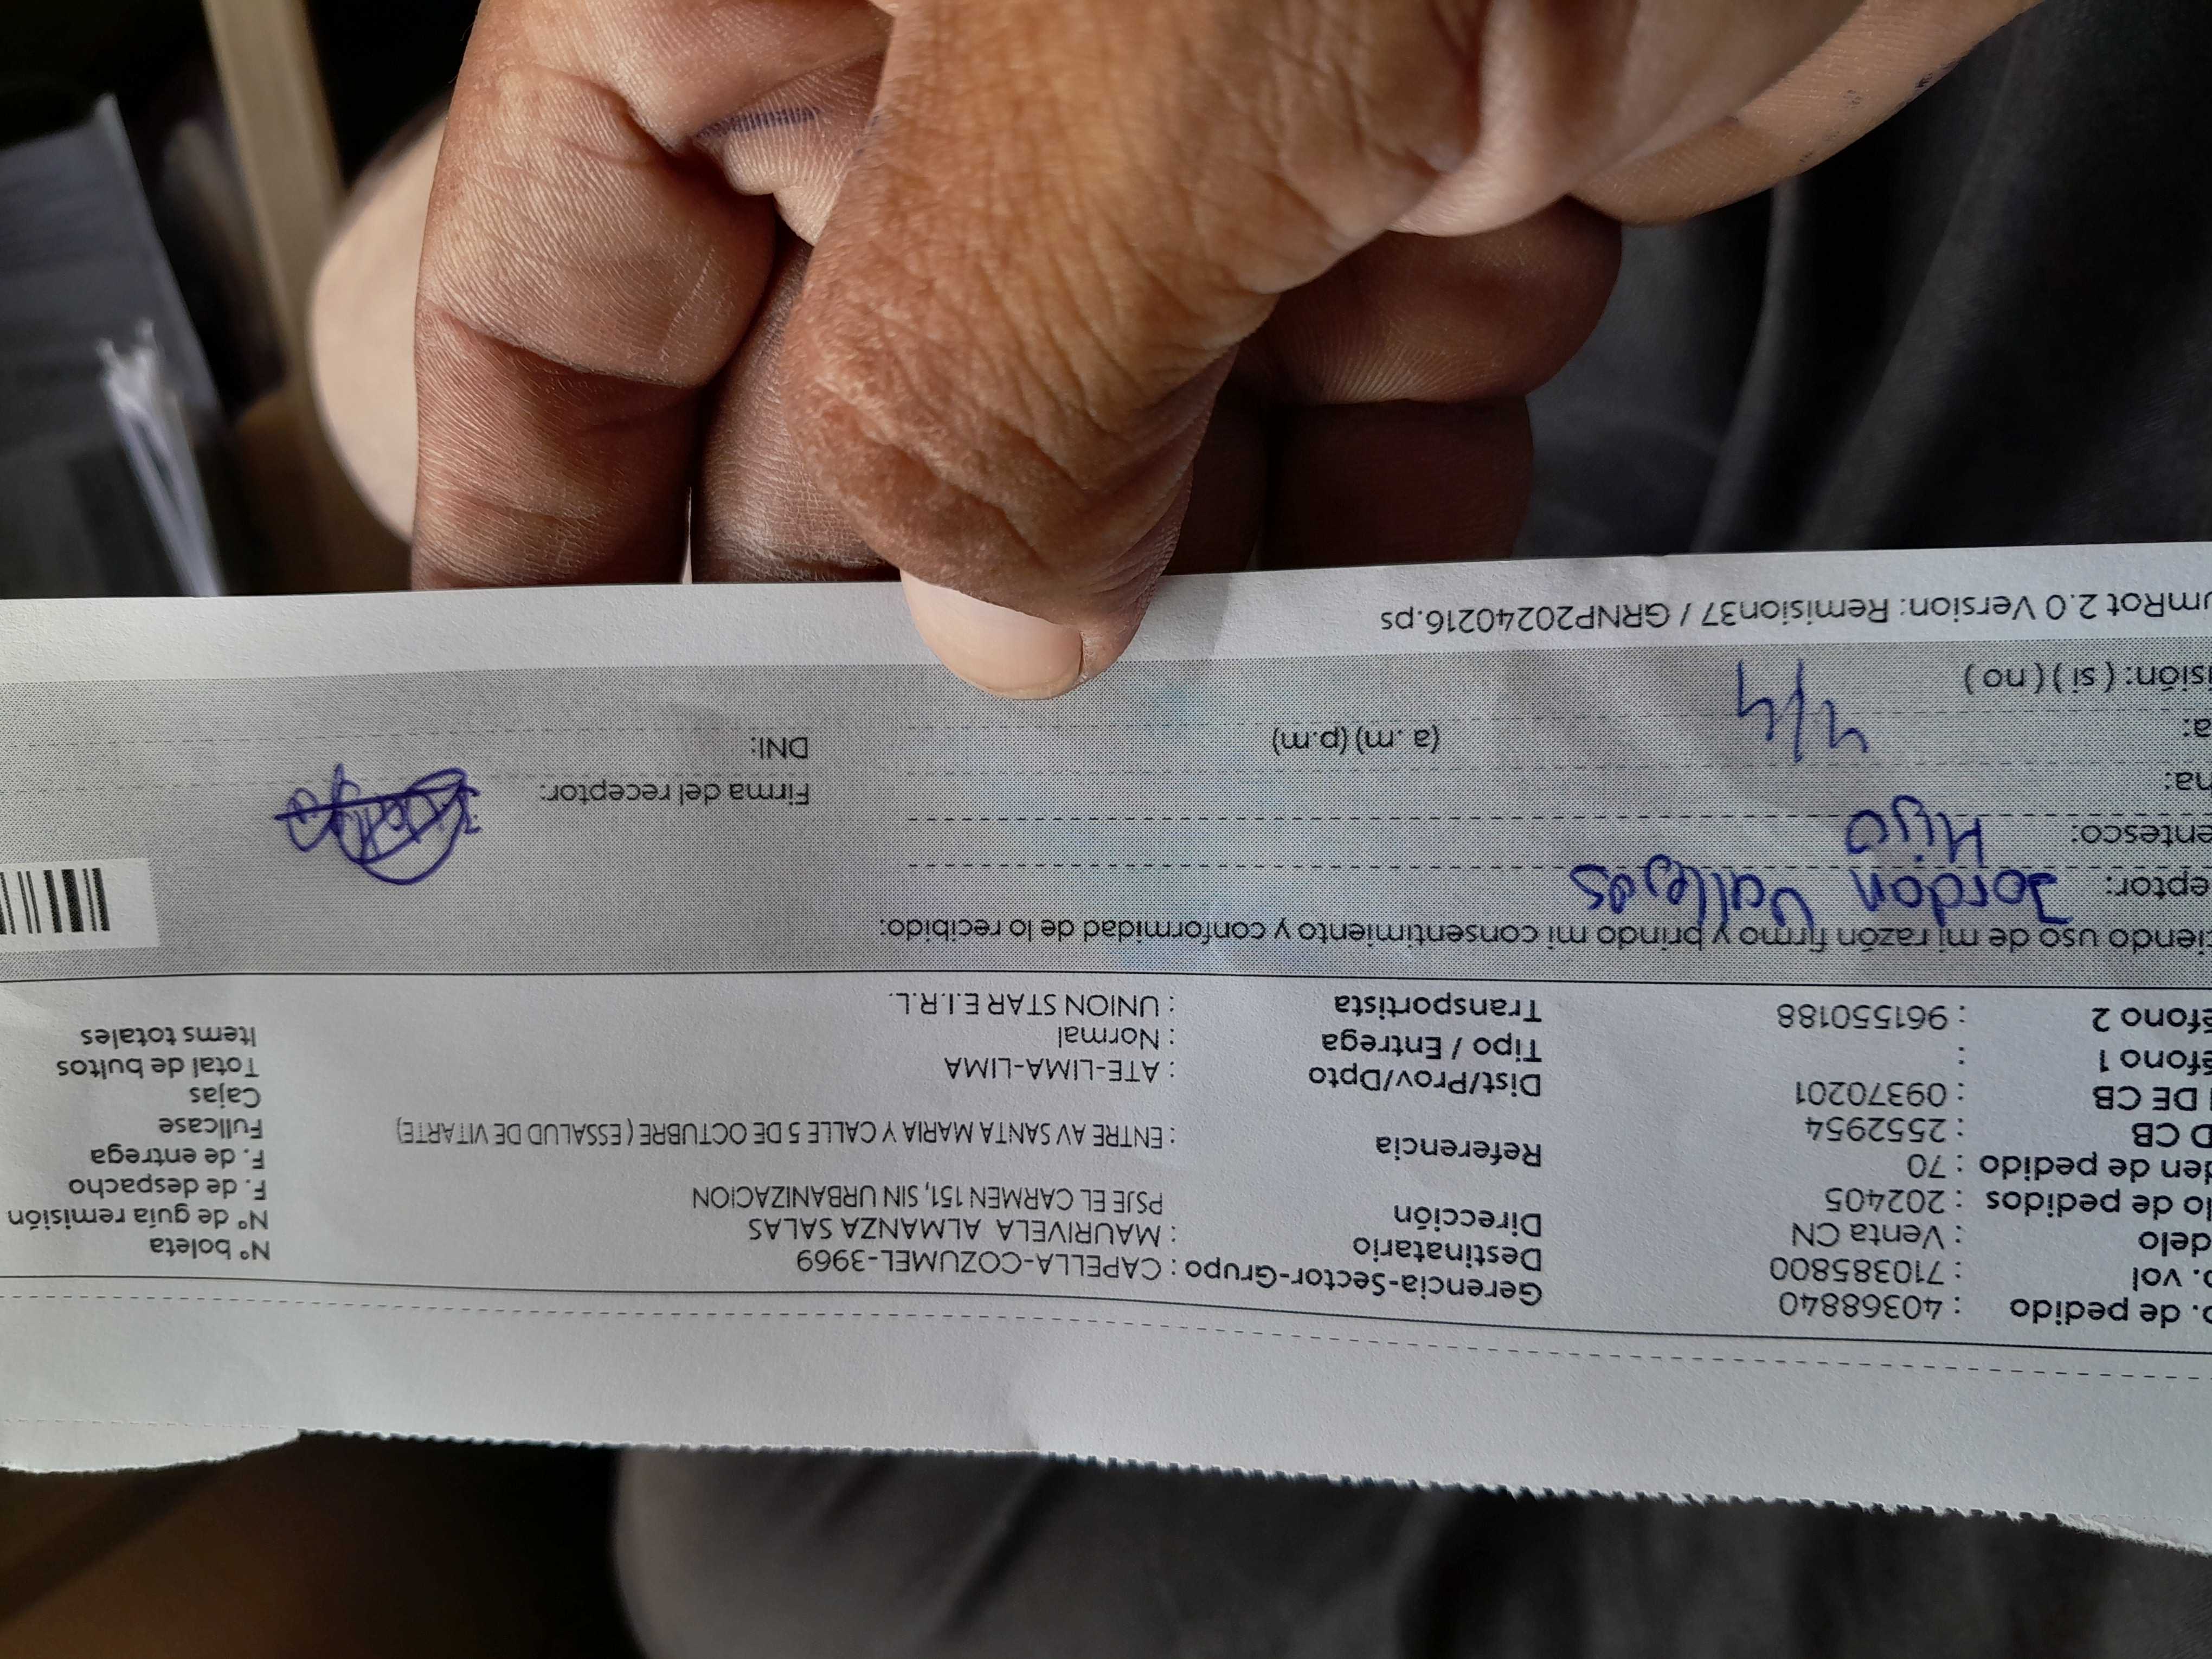 o. de pedido : 40368840 Gerencia-Sector-Grupo : CAPELLA-COZUMEL-3969 N° boleta
o. vol : 710385800 Destinatario : MAURIVELA ALMANZA SALAS N° de guia remisión
delo : Venta CN Dirección PSJE EL CARMEN 151, SIN URBANIZACION F. de despacho
lo de pedidos : 202405 Referencia : ENTRE AV SANTA MARIA Y CALLE 5 DE OCTUBRE ( ESSALUD DE VITARTE) F. de entrega
den de pedido : 70 Dist/Prov/Dpto : ATE-LIMA-LIMA Fullcase
D CB : 2552954 Tipo / Entrega : Normal Cajas
I DE CB : 09370201 Transportista : UNION STAR E.I.R.L. Total de bultos
éfono 1 : Items totales
éfono 2 : 961550188
iendo uso de mi razón firmo y brindo mi consentimiento y conformidad de lo recibido:
eptor: Jordan Vallejos
entesco: Hijo Firma del receptor:
na: 4/4
a: (a .m) (p.m) DNI:
isión: ( si ) ( no )
umRot 2.0 Version: Remision37 / GRNP20240216.ps